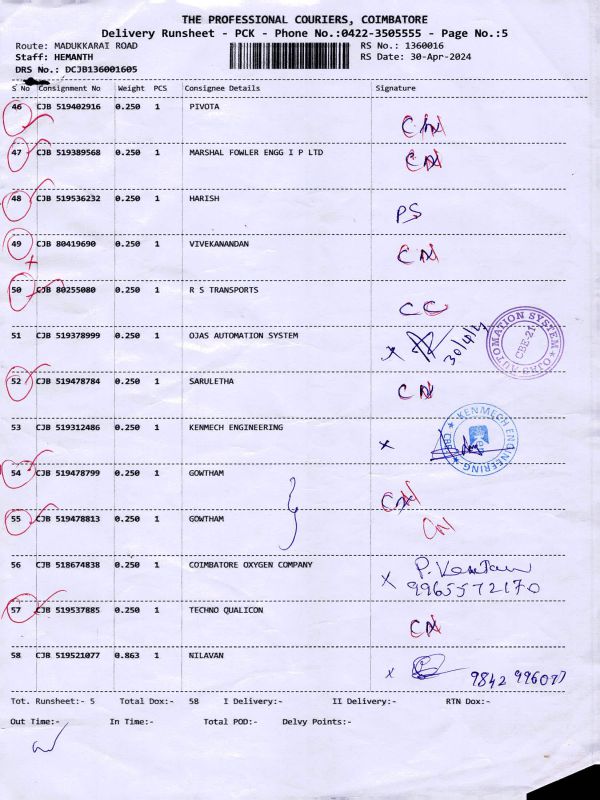 THE PROFESSIONAL COURIERS, COIMBATORE
Delivery Runsheet - PCK - Phone No.:0422-3505555 - Page No.:5
Route: MADUKKARAI ROAD RS No.: 1360016
Staff: HEMANTH RS Date: 30-Apr-2024
DRS No.: DCJB136001605
S No Consignment No Weight PCS Consignee Details Signature
46 CJB 519402916 0.250 1 PIVOTA
CN
47 CJB 519389568 0.250 1 MARSHAL FOWLER ENGG I P LTD CN
48 CJB 519536232 0.250 1 HARISH
PS
49 CJB 80419690 0.250 1 VIVEKANANDAN CN
50 CJB 80255080 0.250 1 R S TRANSPORTS
CC
51 CJB 519378999 0.250 1 OJAS AUTOMATION SYSTEM x 30/4/24 OJAS AUTOMATION SYSTEM CBE-21
52 CJB 519478784 0.250 1 SARULETHA CN
53 CJB 519312486 0.250 1 KENMECH ENGINEERING x KENMECH ENGINEERING CBE
54 CJB 519478799 0.250 1 GOWTHAM
CN
55 CJB 519478813 0.250 1 GOWTHAM CN
56 CJB 518674838 0.250 1 COIMBATORE OXYGEN COMPANY x P.
9965572170
57 CJB 519537885 0.250 1 TECHNO QUALICON
CN
58 CJB 519521077 0.863 1 NILAVAN
x 9842 996077
Tot. Runsheet:- 5 Total Dox:- 58 I Delivery:- II Delivery:- RTN Dox:-
Out Time:- In Time:- Total POD:- Delvy Points:-